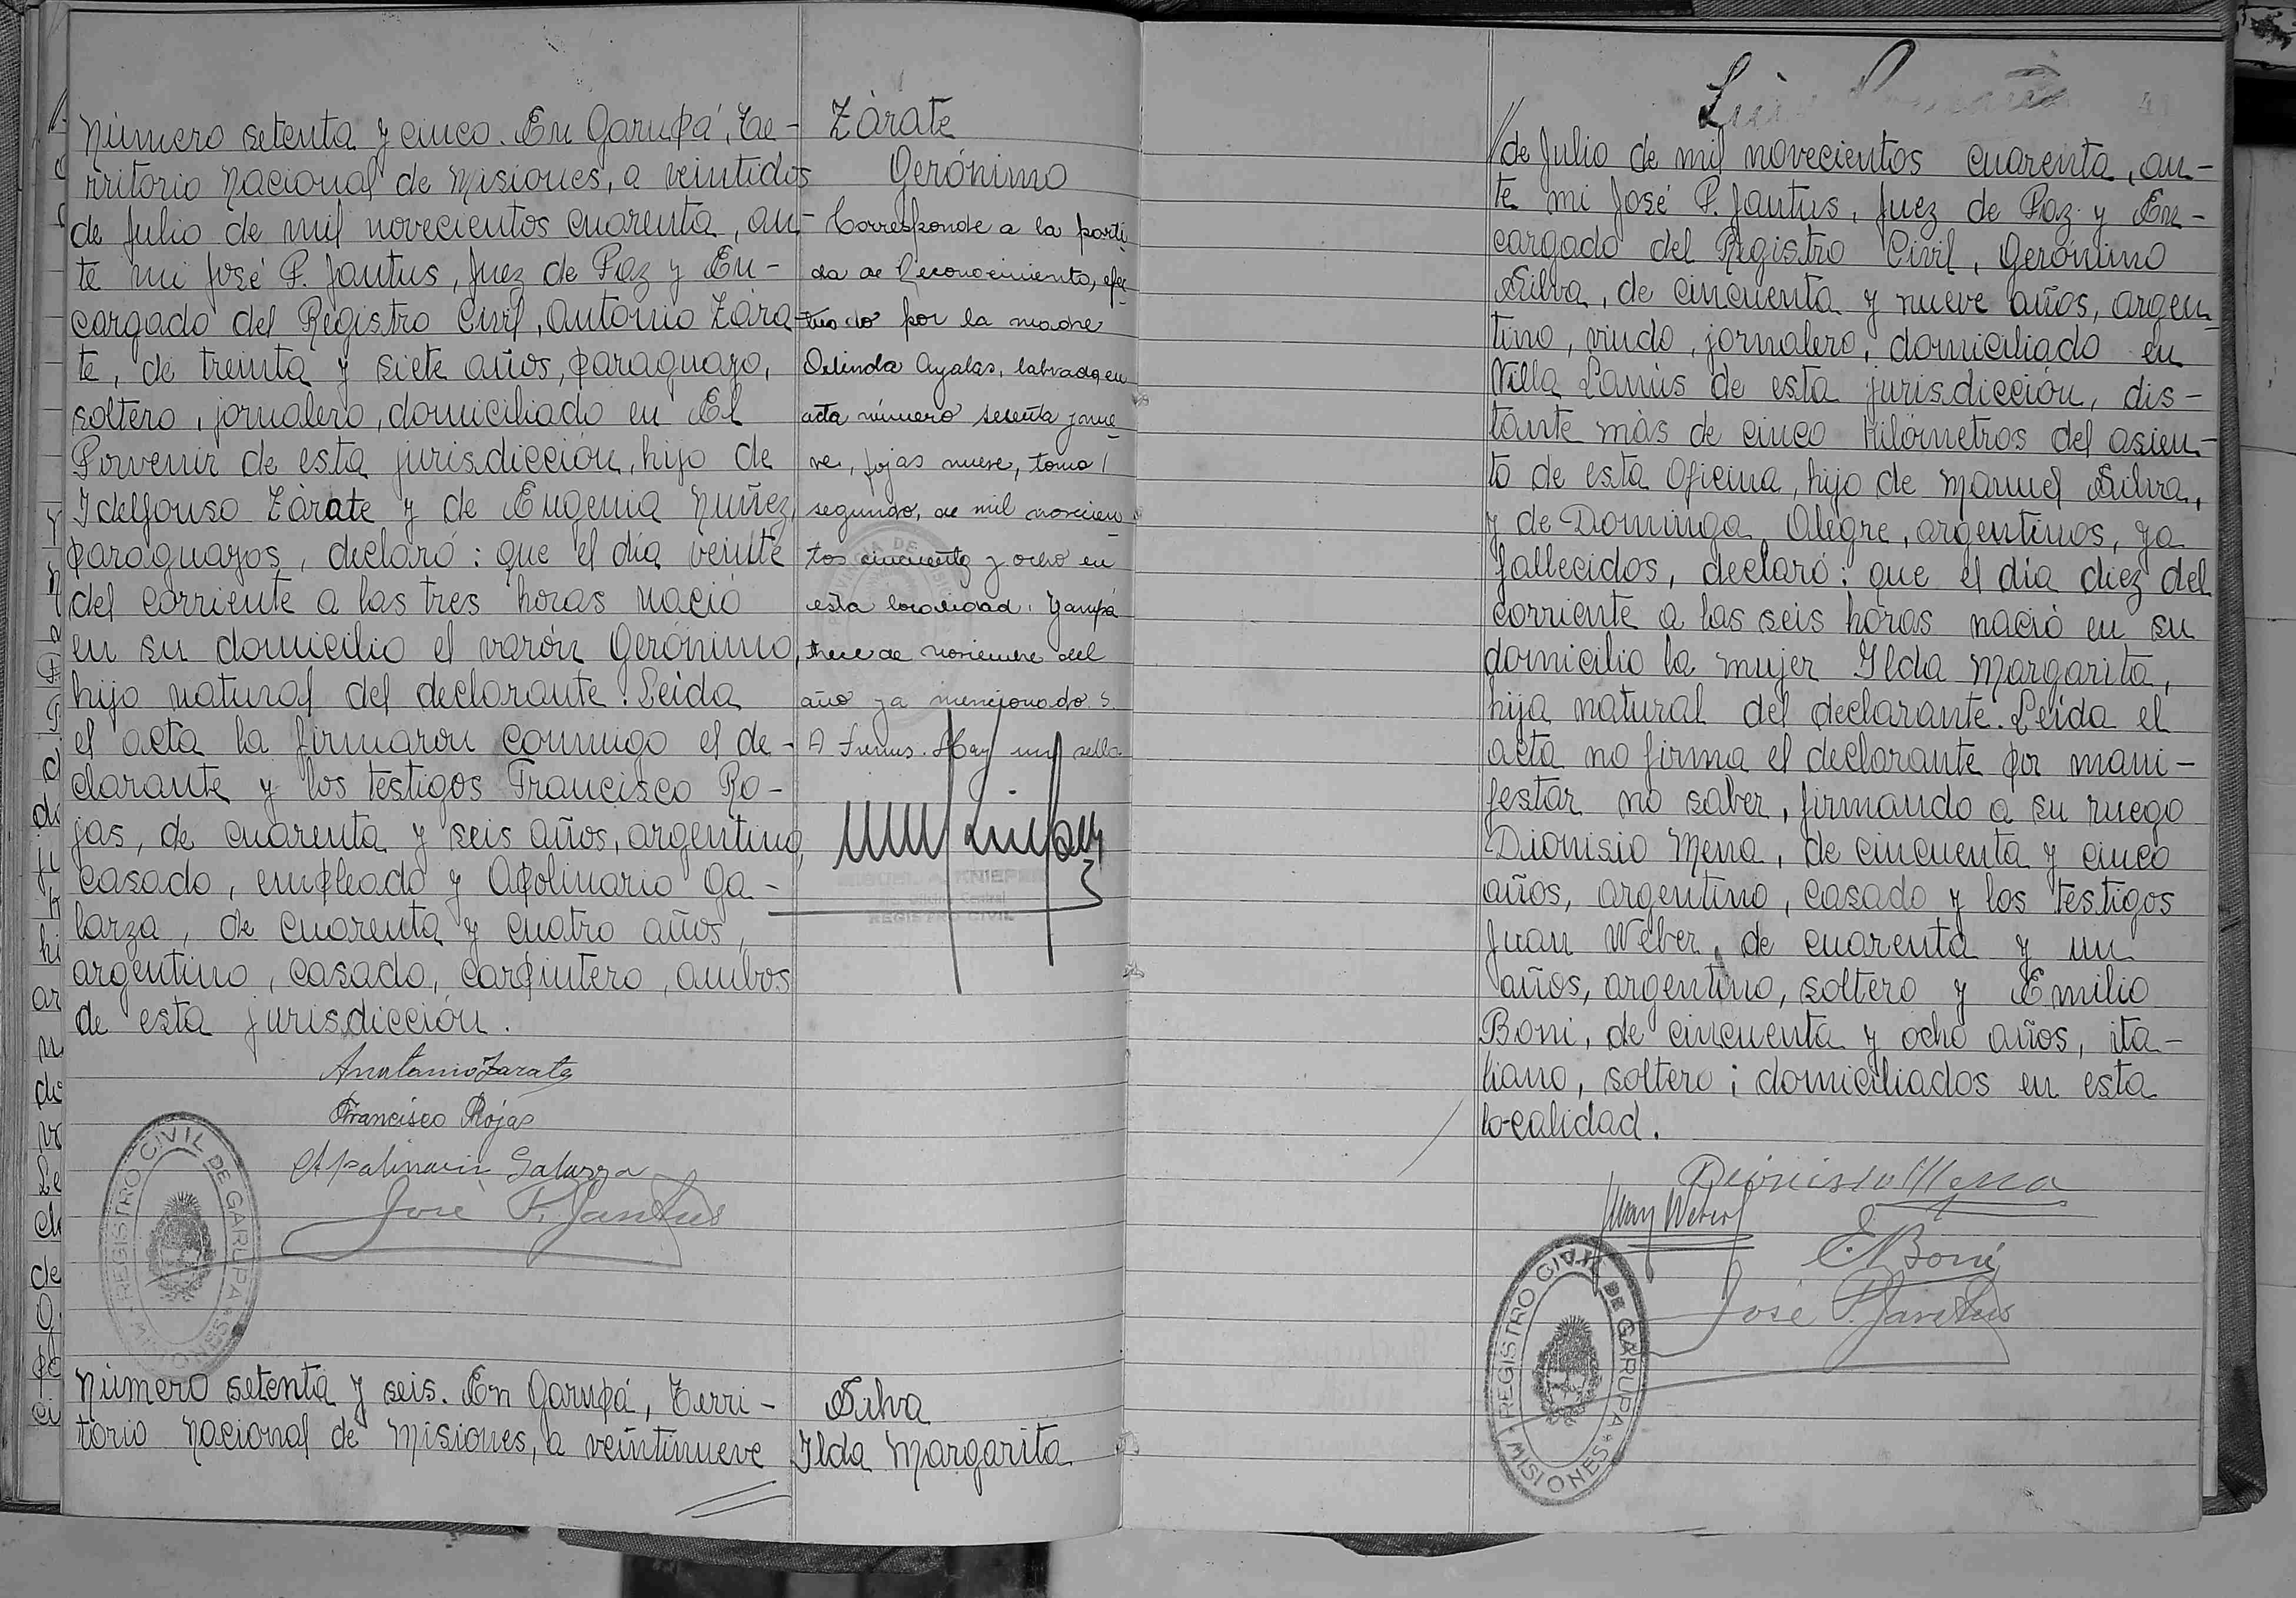 Número setenta y cinco. En Garupá, Te-
rritorio Nacional de Misiones, a veintidos
de Julio de mil novecientos cuarenta, an-
te mi José P. Jantus, Juez de Paz y En-
cargado del Registro Civil, Antonio Zára-
te, de treinta y siete años, paraguayo,
soltero, jornalero, domiciliado en El
Porvenir de esta jurisdicción, hijo de
Idelfonso Zárate y de Eugenia Nuñez,
paraguayos, declaró: que el día veinte
del corriente a las tres horas nació
en su domicilio el varón Gerónimo,
hijo natural del declarante. Leida
el acta la firmaron conmigo el de-
clarante y los testigos Francisco Ro-
jas, de cuarenta y seis años, argentino,
casado, empleado y Apolinario Ga-
larza, de cuarenta y cuatro años,
argentino, casado, carpintero, ambos
de esta jurisdicción.
Anntonio Zarate
Francisco Rojas
Apalinario Galarza
José P. Jantus
REGISTRO CIVIL DE GARUPA
MISIONES
Zárate
Gerónimo
Corresponde a la parti
da de Reconocimiento, efec-
tuado por la madre
Orlinda Ayalas, labrada en
acta número sesenta y nue-
ve, fojas nueve, tomo
segundo, de mil novecien-
tos cincuenta y ocho en
esta localidad. Garupá
trece de noviembre del
año ya mencionado
Hay un sello
MIGUEL A. KNIEPER
Oficina Central
REGISTRO CIVIL
Número setenta y seis. En Garupá, Terri-
torio Nacional de Misiones, a veintinueve
Silva
Ilda Margarita
de Julio de mil novecientos cuarenta, an-
te mi José P. Jantus, Juez de Paz y En-
cargado del Registro Civil, Gerónimo
Silva, de cincuenta y nueve años, argen-
tino, viudo, jornalero, domiciliado en
Villa Lanús de esta jurisdicción, dis-
tante más de cinco kilómetros del asien-
to de esta Oficina, hijo de Manuel Silva,
y de Dominga Alegre, argentinos, ya
fallecidos, declaró: que el día diez del
corriente a las seis horas nació en su
domicilio la mujer Ilda Margarita,
hija natural del declarante. Leída el
acta no firma el declarante por mani-
festar no saber, firmando a su ruego
Dionisio Mena, de cincuenta y cinco
años, argentino, casado y los testigos
Juan Weber, de cuarenta y un
años, argentino, soltero y Emilio
Boni, de cincuenta y ocho años, ita-
liano, soltero; domiciliados en esta
localidad.
Dionissio Mena
Juan Weber
E. Boni
José P. Jantus
REGISTRO CIVIL DE GARUPA
MISIONES